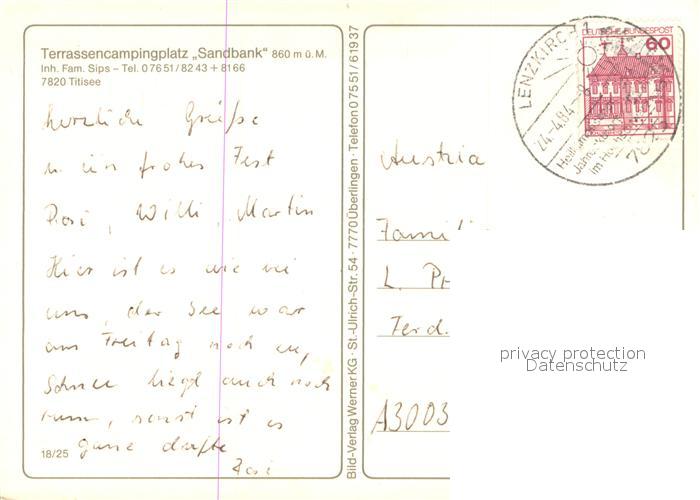 Terrassencampingplatz „Sandbank“ 860 m ü. M.
Inh. Fam. Sips – Tel. 0 76 51 / 82 43 + 81 66
7820 Titisee
herzliche Grüße
u ein frohes Fest
Rosi, Willi, Martin
Hier ist es wie bei
uns, der See war
am Freitag noch zu,
Schnee liegt auch noch
rum, sonst ist es
ganz dufte
Rosi
18/25
Bild-Verlag Werner KG · St.-Ulrich-Str. 54 · 7770 Überlingen · Telefon 0 75 51 / 6 19 37
DEUTSCHE BUNDESPOST
60
LENZKIRCH 1
24.-4.84-
Austria
Famil
L. Pr
Ferd.
A3003
privacy protection
Datenschutz